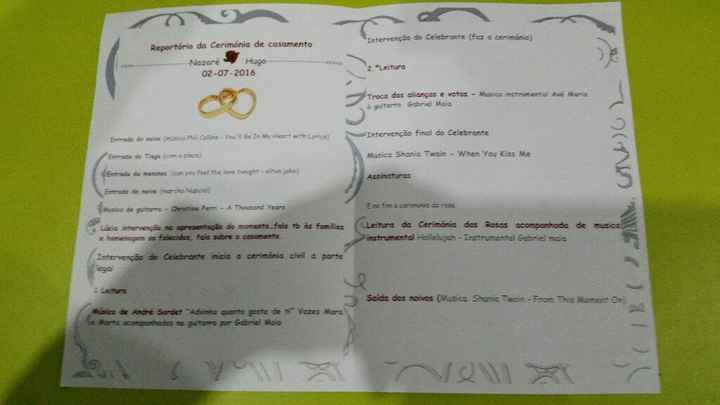 Repertório da Cerimónia de casamento
Nazaré Hugo
02-07-2016
Entrada do noivo (música Phil Collins - You'll Be In My Heart with Lyrics)
Entrada do Tiago (com a placa)
Entrada da meninas (can you feel the love tonight - elton john)
Entrada da noiva (marcha Nupcial)
Musica de guitarra - Christina Perri - A Thousand Years
Lúcia intervenção na apresentação do momento..fala tb às famílias
e homenagem os falecidos, fala sobre o casamento.
Intervenção do Celebrante inicia a cerimónia civil a parte
legal
1. Leitura
Música de André Sardet "Adivinha quanto gosto de ti" Vozes Mara
e Marta acompanhadas na guitarra por Gabriel Maia
Intervenção do Celebrante (faz a cerimónia)
2. ªLeitura
Troca das alianças e votos - Musica instrumental Avé Maria
à guitarra Gabriel Maia
Intervenção final do Celebrante
Musica Shania Twain - When You Kiss Me
Assinaturas
E no fim a cerimonia da rosa
Leitura da Cerimónia das Rosas acompanhada de musica
instrumental Hallelujah - Instrumental Gabriel maia
Saída dos noivos (Musica: Shania Twain - From This Moment On)